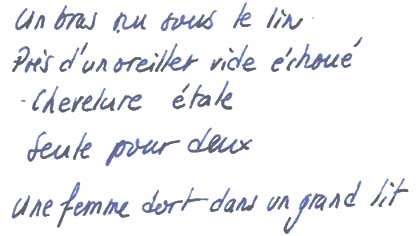 Un bras nu sous le lin
Près d'un oreiller vide échoué
Chevelure étale
Seule pour deux
Une femme dort dans un grand lit